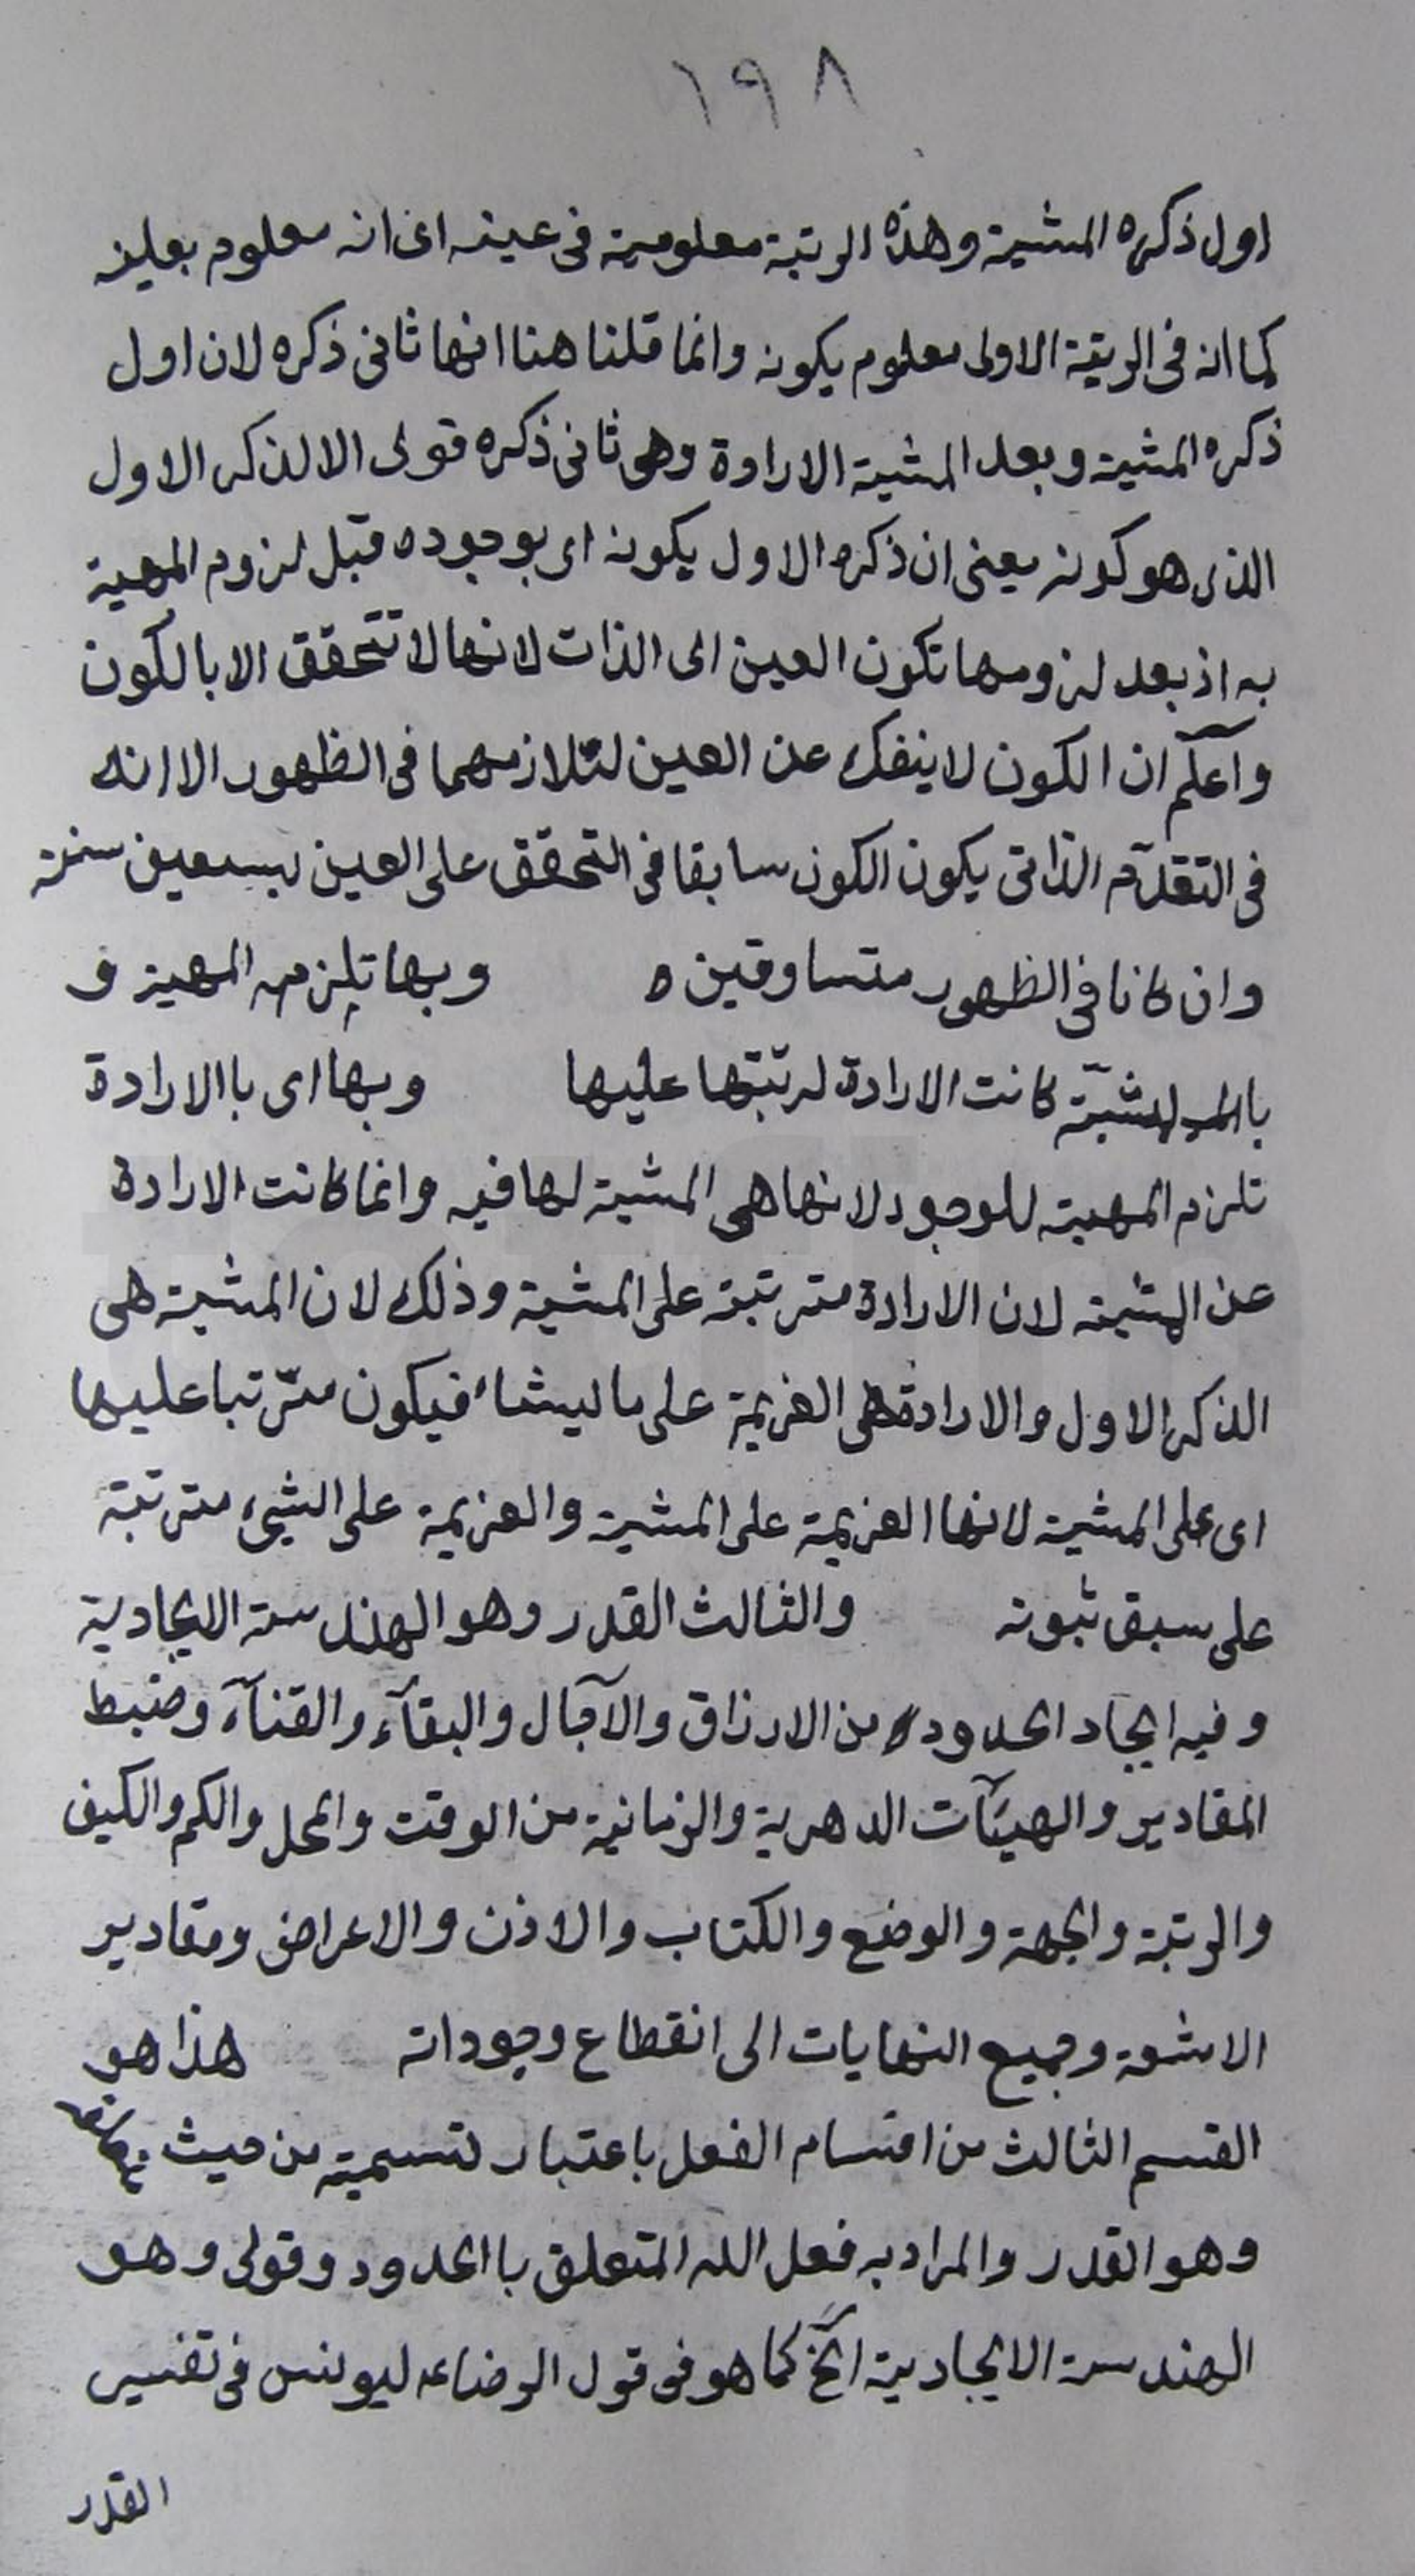 ١٩٨
اول ذكره المشية وهذه الرتبة معلومية فى عينه اى انه معلوم بعينه
كما انه فى الرتبة الاولى معلوم بكونه وانما قلنا هنا انها ثانى ذكره لان اول
ذكره المشية وبعد المشية الارادة وهى ثانى ذكره قولى الا لذكر الاول
الذى هو كونه يعنى ان ذكره الاول بكونه اى بوجوده قبل لزوم المهية
به اذ بعد لزومها تكون العين اى الذات لانها لا تتحقق الا بالكون
واعلم ان الكون لا ينفك عن العين لتلازمهما فى الظهور الا انه
فى التقدّم الذاتى يكون الكون سابقا فى التحقق على العين بسبعين سنة
وان كانا فى الظهور متساوقين ه وبها تلزمه المهية و
بالمشيّة كانت الارادة لترتبها عليها وبها اى باالارادة
تلزم المهية للوجود لانها هى المشية لها فيه وانما كانت الارادة
عن المشية لان الارادة مترتبة على المشية وذلك لان المشية هى
الذكر الاول والارادة هى العزيمة على ما يشاء فيكون مترتبا عليها
اى على المشية لانها العزيمة على المشية والعزيمة على الشيء مترتبة
على سبق ثبوته والثالث القدر وهو الهندسة الايجادية
وفيه ايجاد الحدود من الارزاق والآجال والبقآء والفنآء وضبط
المقادير والهيئآت الدهرية والزمانية من الوقت والمحل والكم والكيف
والرتبة والجهة والوضع والكتاب والاذن والاعراض ومقادير
الاشعة وجميع النهايات الى انقطاع وجوداته هذا هو
القسم الثالث من اقسام الفعل باعتبار تسميته من حيث
وهو القدر والمراد به فعل الله المتعلق باالحدود وقولى وهو
الهندسة الايجادية آلخ كما هو فى قول الرضا عه ليونس فى تفسير
القدر